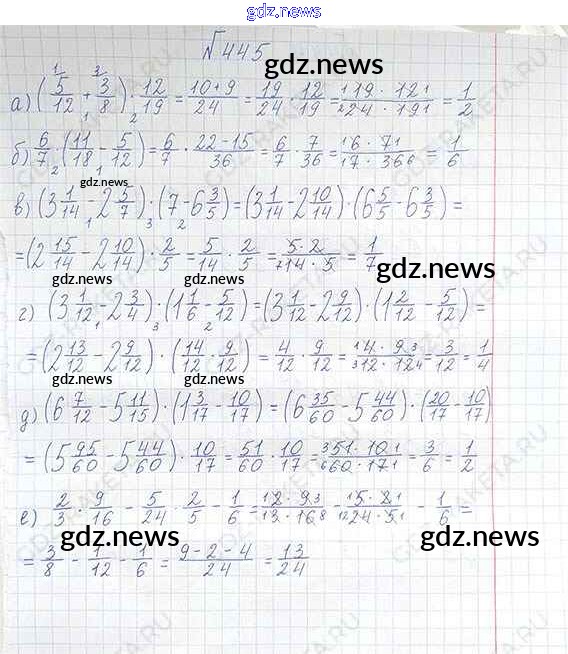 gdz.news
№445
gdz.news
а) (5/12 + 3/8) · 12/19 = 10+9/24 = 19/24 · 12/19 = 19 · 12/24 · 19 = 1/2
б) 6/7 · (11/18 - 5/12) = 6/7 · 22-15/36 = 6/7 · 7/36 = 6 · 7/7 · 36 = 1/6
gdz.news
в) (3 1/14 - 2 5/7) · (7 - 6 3/5) = (3 1/14 - 2 10/14) · (6 5/5 - 6 3/5) =
= (2 15/14 - 2 10/14) · 2/5 = 5/14 · 2/5 = 5·2/14·5 = 1/7
gdz.news gdz.news gdz.news
г) (3 1/12 - 2 3/4) · (1 1/6 - 5/12) = (3 1/12 - 2 9/12) · (1 2/12 - 5/12) =
= (2 13/12 - 2 9/12) · (14/12 · 9/12) = 4/12 · 9/12 = 4 · 9/12 · 12 = 3/12 = 1/4
gdz.news gdz.news
д) (6 7/12 - 5 11/15) · (1 3/17 - 10/17) = (6 35/60 - 5 44/60) · (20/17 - 10/17)
= (5 95/60 - 5 44/60) · 10/17 = 51/60 · 10/17 = 51 · 10/60 · 17 = 3/6 = 1/2
е) 2/3 · 9/16 - 5/24 · 2/5 - 1/6 = 2 · 9/3 · 16 - 5 · 2/24 · 5 - 1/6 =
gdz.news gdz.news
= 3/8 - 1/12 - 1/6 = 9-2-4/24 = 13/24